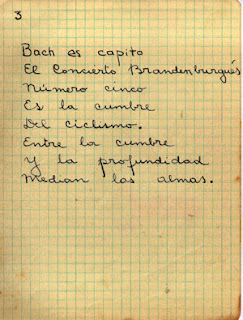 3
Bach es capito
El Concierto Brandenburgués
Número cinco
Es la cumbre
Del ciclismo.
Entre la cumbre
Y la profundidad
Median las almas.